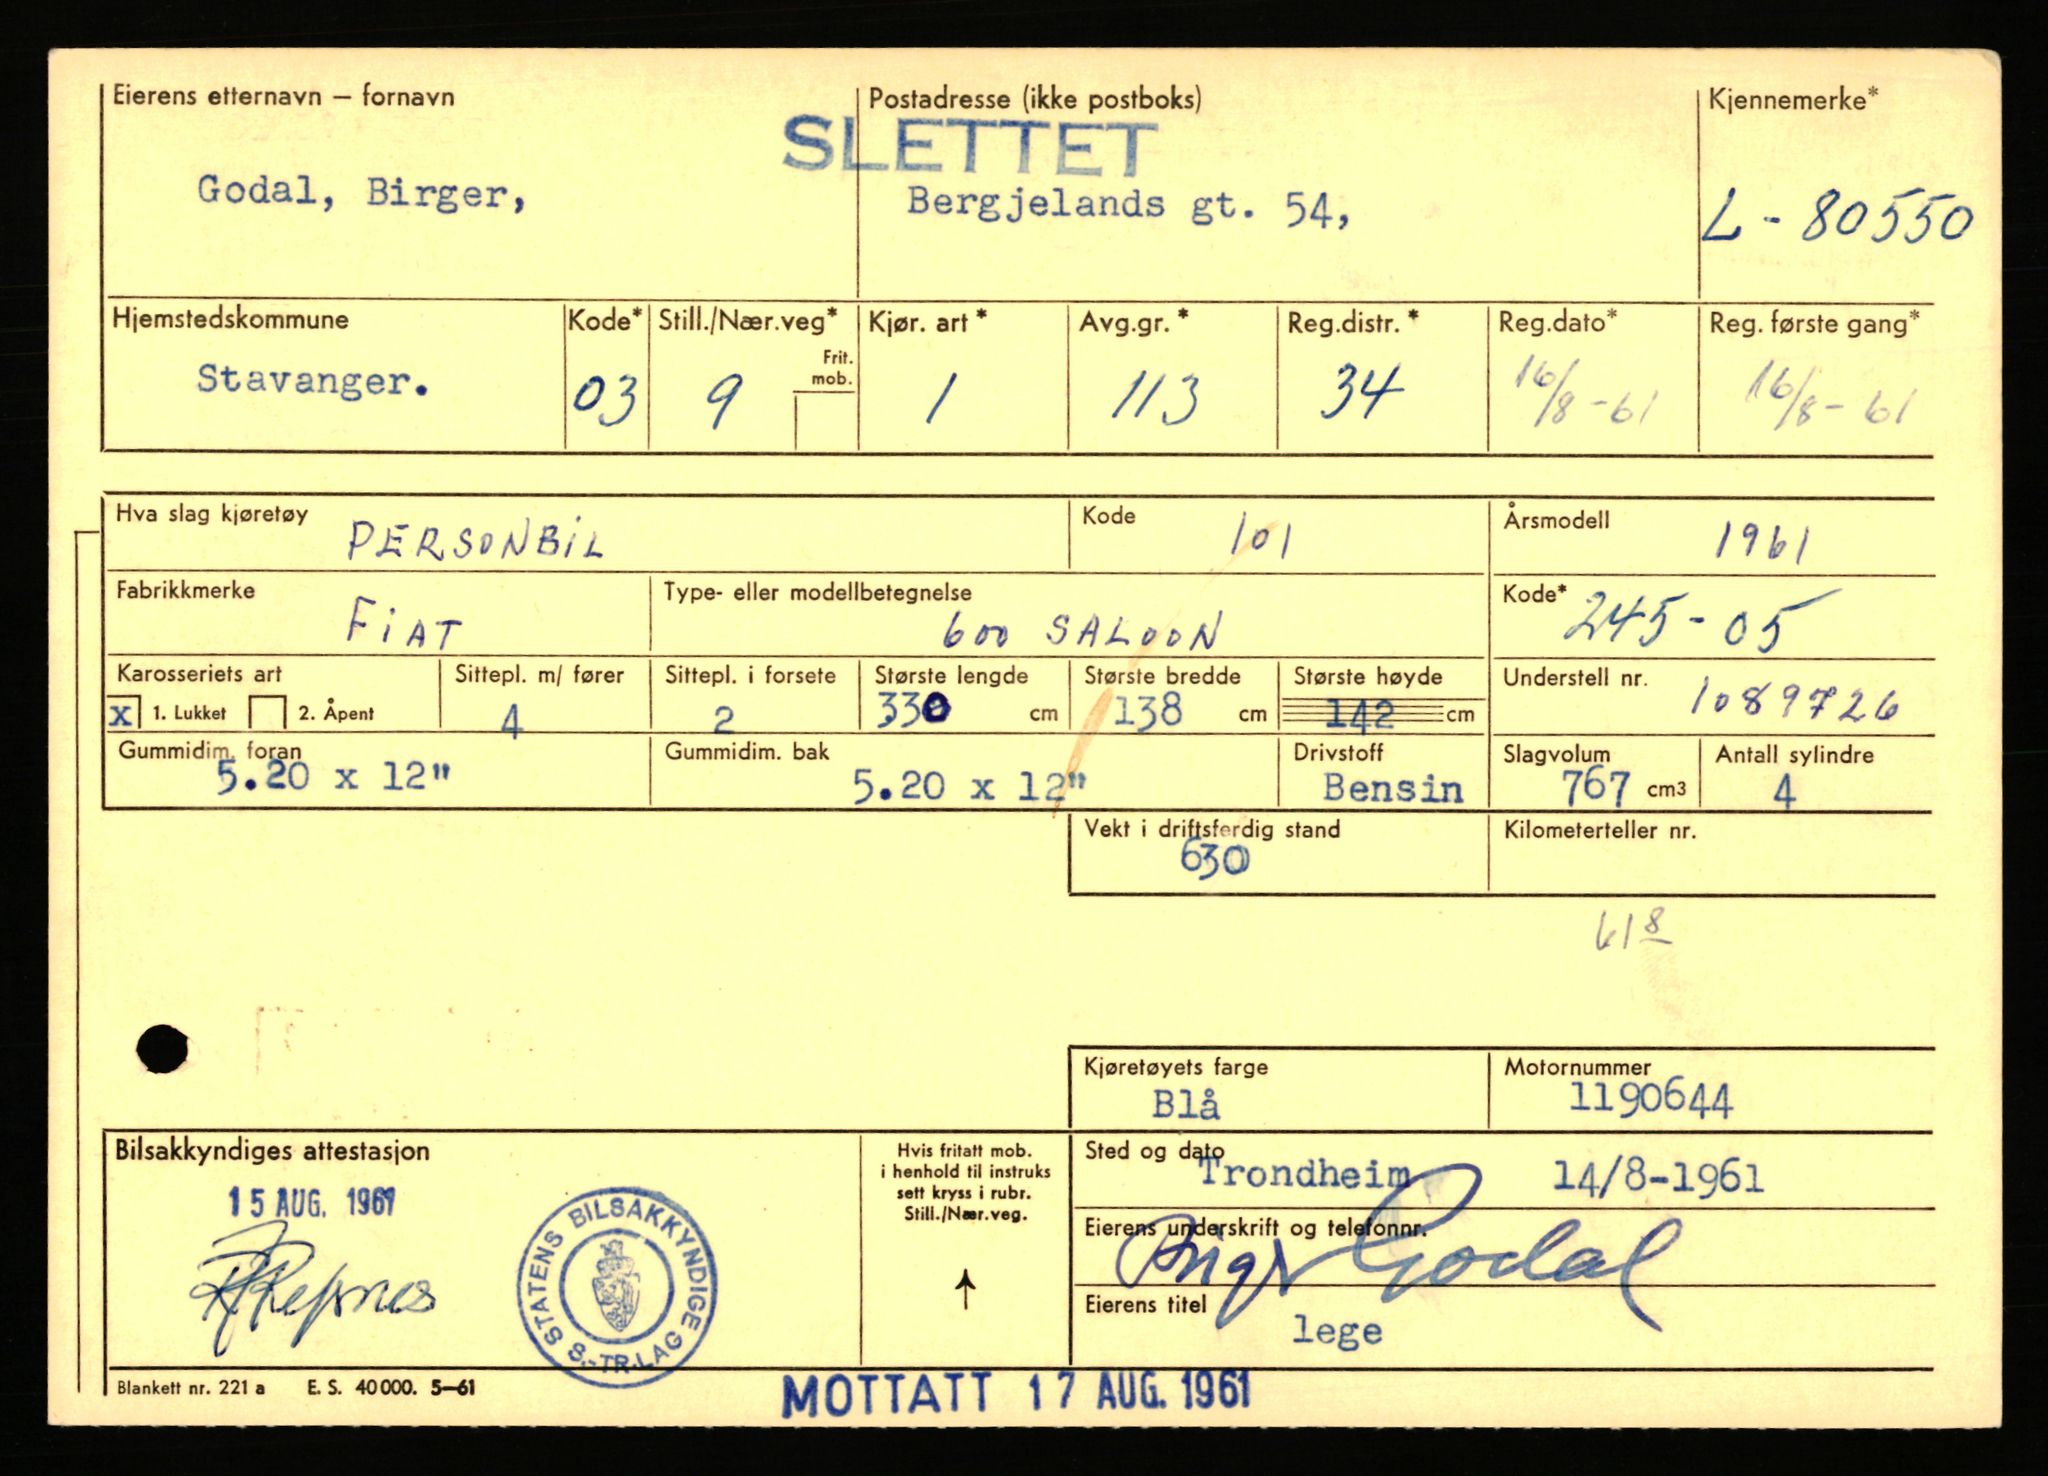 Eierens etternavn – fornavn
Postadresse (ikke postboks)
Kjennemerke*
SLETTET
Godal, Birger,
Bergjelands gt. 54,
L - 80550
Hjemstedskommune
Kode*
Still./Nær.veg*
Kjør. art *
Avg.gr. *
Reg.distr. *
Reg.dato*
Reg. første gang*
Frit. mob.
Stavanger.
03
9
1
113
34
16/8 - 61
16/8 - 61
Hva slag kjøretøy
PERSONBIL
Kode
101
Årsmodell
1961
Fabrikkmerke
FIAT
Type- eller modellbetegnelse
600 SALOON
Kode*
245-05
Karosseriets art
x 1. Lukket 2. Åpent
Sittepl. m/ fører
4
Sittepl. i forsete
2
Største lengde
330 cm
Største bredde
138 cm
Største høyde
142 cm
Understell nr.
1089726
Gummidim. foran
5.20 x 12"
Gummidim. bak
5.20 x 12"
Drivstoff
Bensin
Slagvolum
767 cm3
Antall sylindre
4
Vekt i driftsferdig stand
630
Kilometerteller nr.
61 8
Kjøretøyets farge
Blå
Motornummer
1190644
Bilsakkyndiges attestasjon
15 AUG. 1961
STATENS BILSAKKYNDIGE
S.-TR.LAG
Hvis fritatt mob.
i henhold til instruks
sett kryss i rubr.
Still./Nær.veg.
Sted og dato
Trondheim 14/8-1961
Eierens underskrift og telefonnr.
Birger Godal
Eierens titel
lege
Blankett nr. 221 a E. S. 40 000. 5–61
MOTTATT 17 AUG. 1961